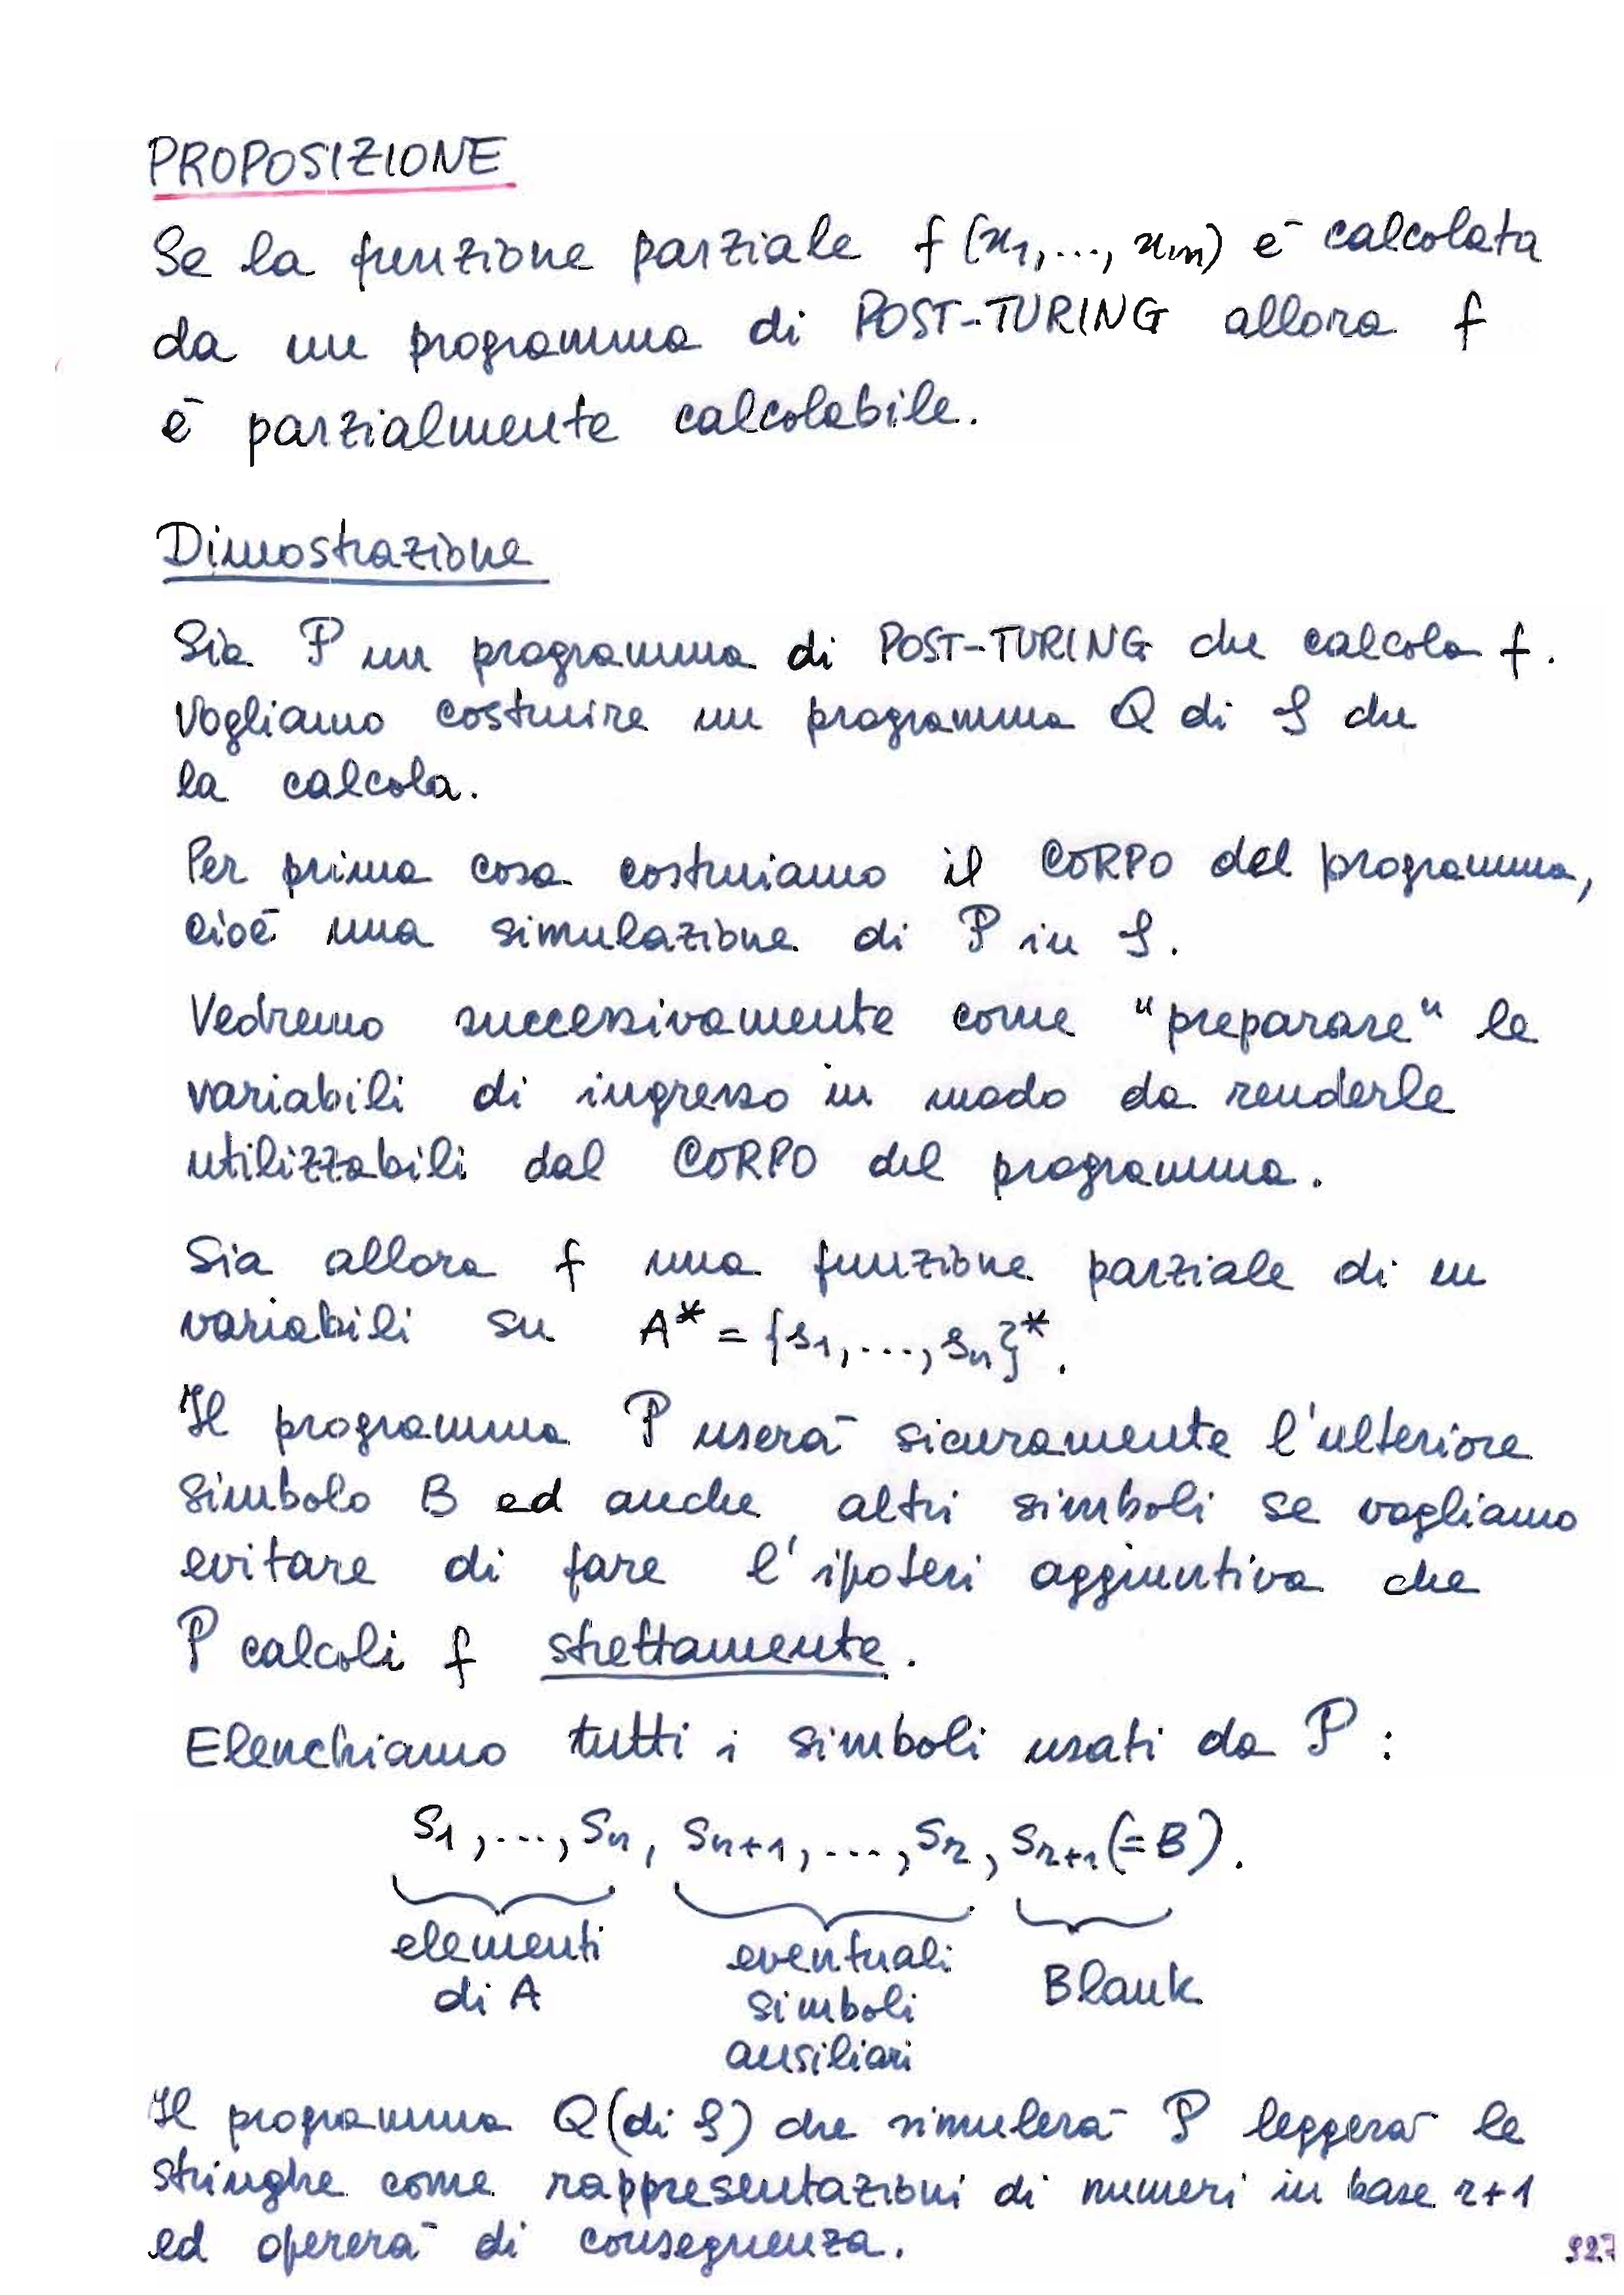 PROPOSIZIONE
Se la funzione parziale f(x1,..., xm) è calcolata
da un programma di POST-TURING allora f
è parzialmente calcolabile.
Dimostrazione
Sia P un programma di POST-TURING che calcola f.
Vogliamo costruire un programma Q di S che
la calcola.
Per prima cosa costruiamo il CORPO del programma,
cioè una simulazione di P in S.
Vedremo successivamente come "preparare" le
variabili di ingresso in modo da renderle
utilizzabili dal CORPO del programma.
Sia allora f una funzione parziale di m
variabili su A* = {s1,...,sn}*.
Il programma P userà sicuramente l'ulteriore
simbolo B ed anche altri simboli se vogliamo
evitare di fare l'ipotesi aggiuntiva che
P calcoli f strettamente.
Elenchiamo tutti i simboli usati da P :
s1,...,sn, sn+1,...,sr, sr+1(=B).
elementi eventuali Blank
di A simboli
ausiliari
Il programma Q (di S) che simulerà P leggerà le
stringhe come rappresentazioni di numeri in base r+1
ed opererà di conseguenza.
927